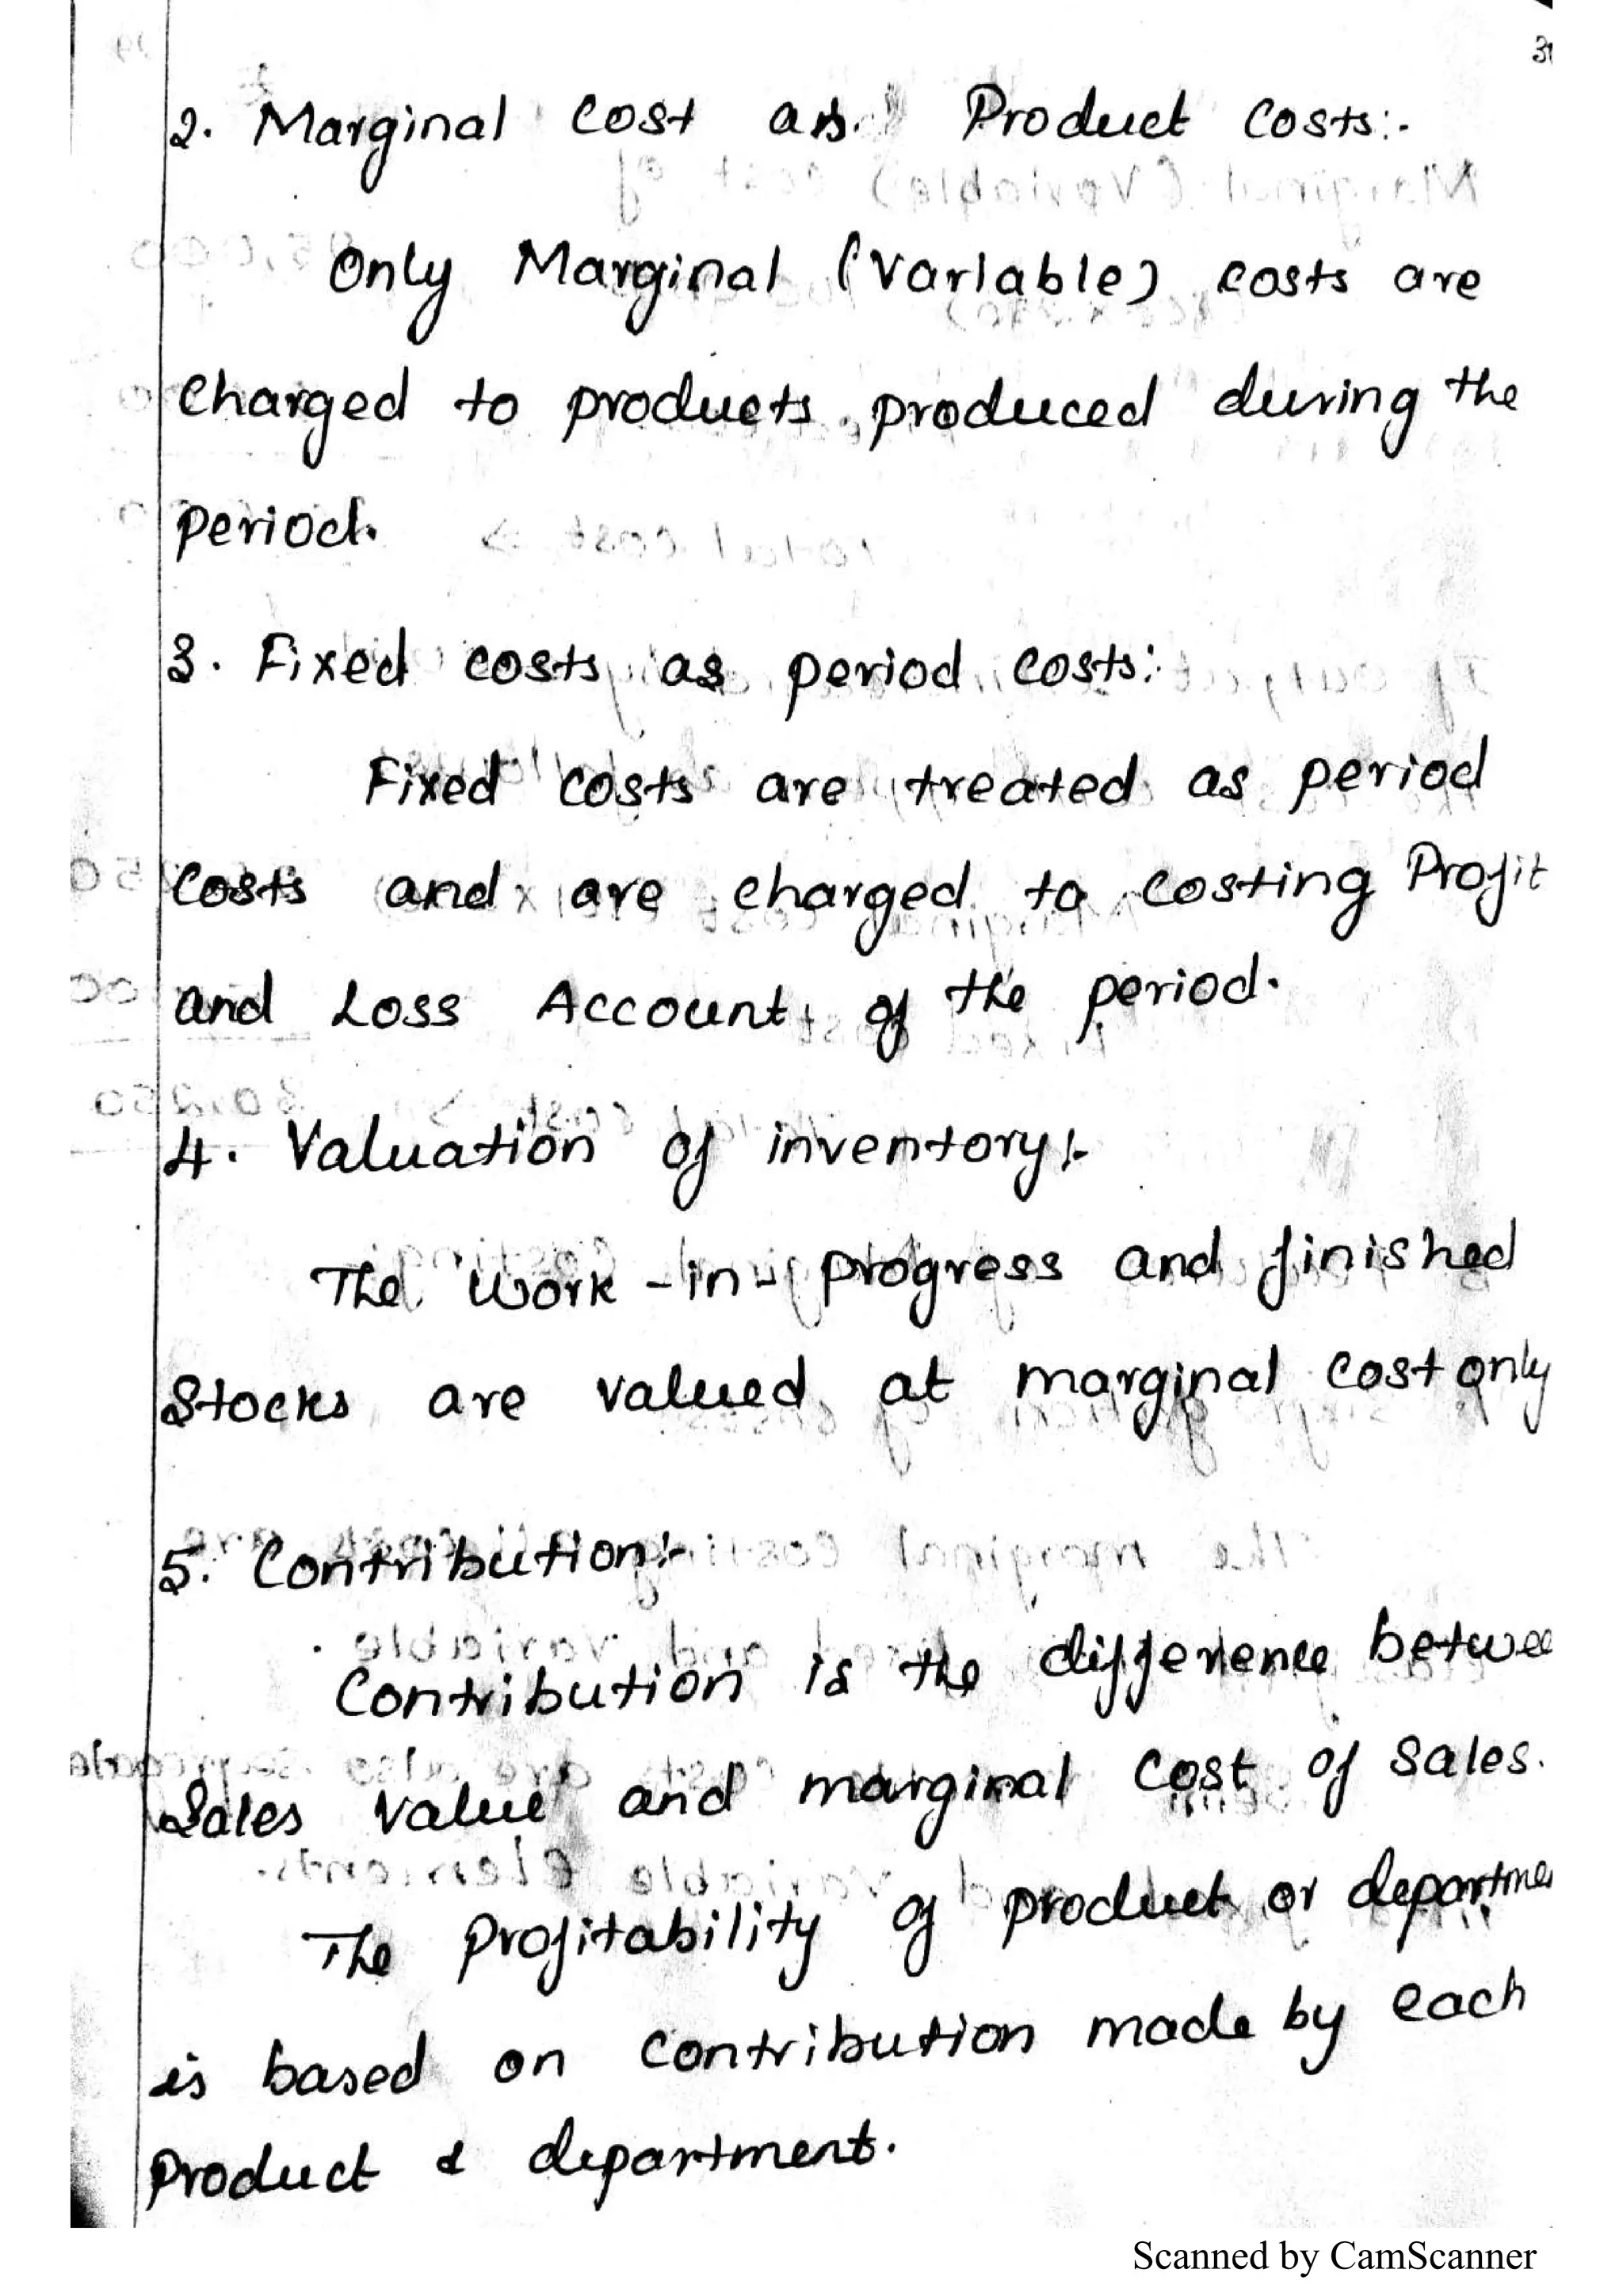 31
2. Marginal Cost as Product Costs:-
Only Marginal (Variable) costs are
Charged to products produced during the
period.
3. Fixed costs as period costs:
Fixed costs are treated as period
Costs and are charged to costing Profit
and Loss Account of the period.
4. Valuation of inventory:-
The Work-in-progress and finished
Stocks are valued at marginal cost only
5. Contribution:-
Contribution is the difference betwee
Sales value and marginal cost of sales.
The profitability of product or departme
is based on contribution made by each
Product & department.
Scanned by CamScanner